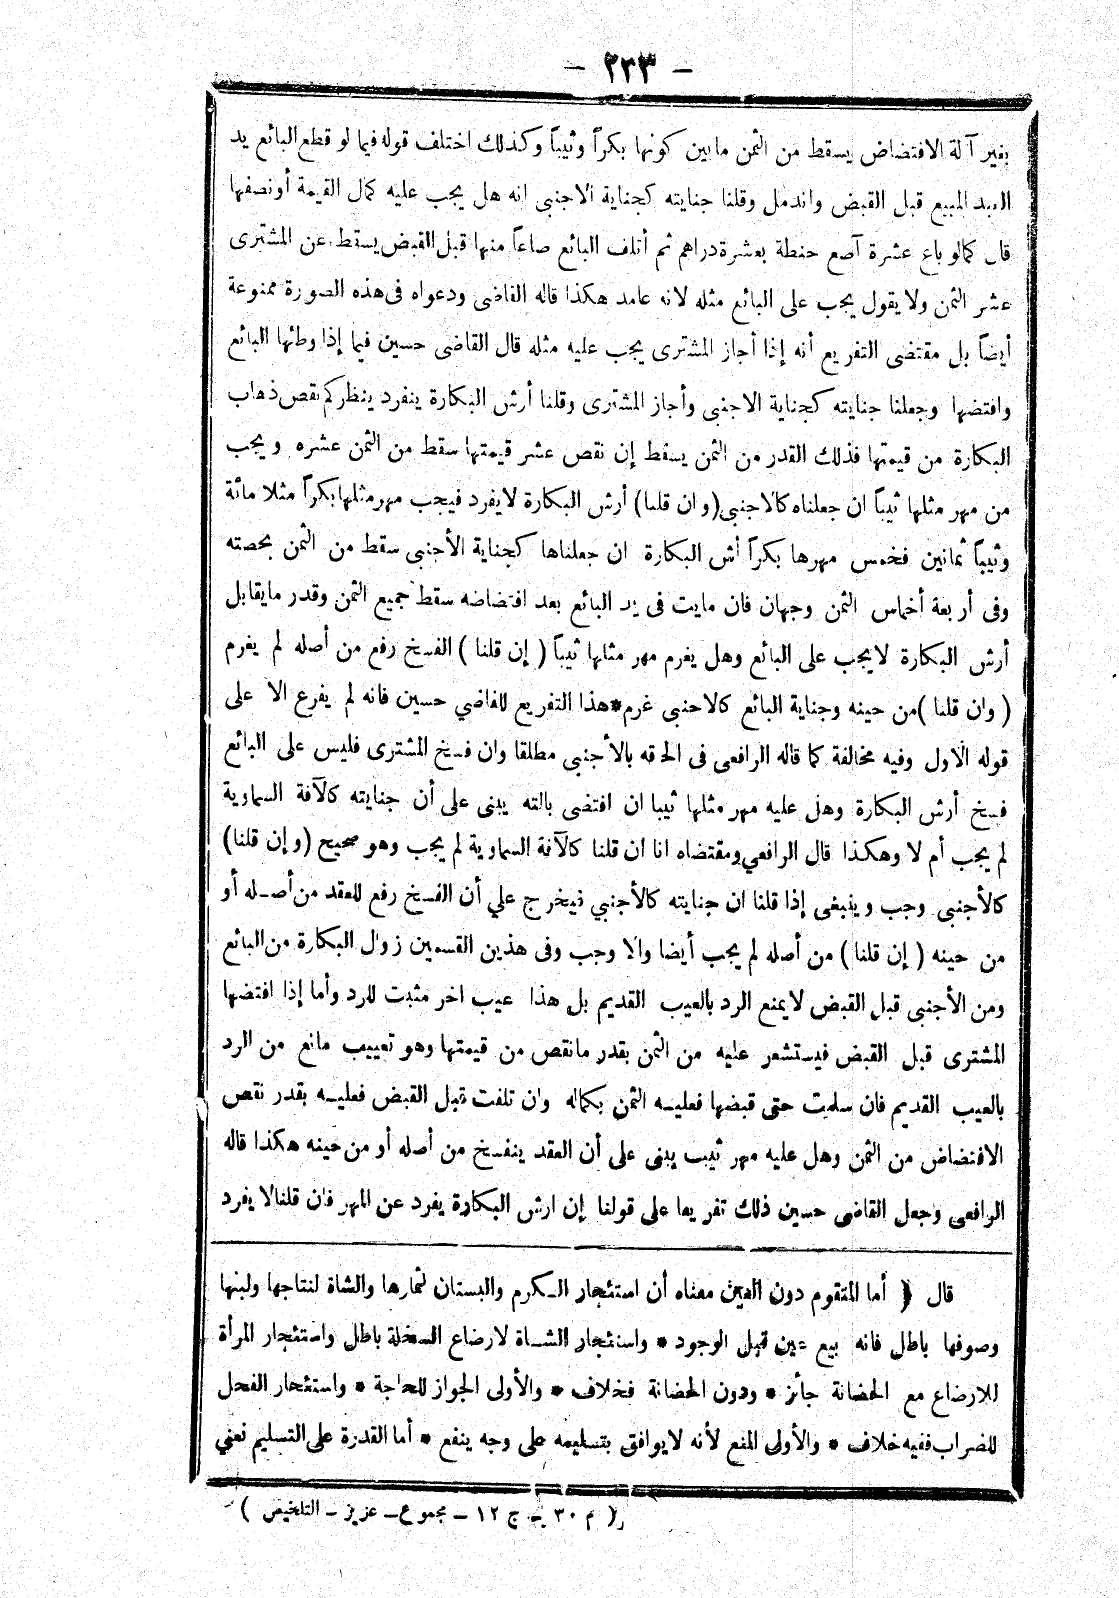 - ٢٣٣ -
بغير آلة الافتضاض يسقط من الثمن مابين كونها بكراً وثيباً وكذلك اختلف قوله فيما لو قطع البائع يد
العبد المبيع قبل القبض واندمل وقلنا جنايته كجناية الاجنبى انه هل يجب عليه كمال القيمة أونصفها
قال كمالو باع عشرة آصع حنطة بعشرة دراهم ثم أتلف البائع صاعاً منها قبل القبض يسقط عن المشترى
عشر الثمن ولا يقول يجب على البائع مثله لانه عامد هكذا قاله القاضى ودعواه فى هذه الصورة ممنوعة
أيضاً بل مقتضى التفريع أنه إذا أجاز المشترى يجب عليه مثله قال القاضى حسين فيما إذا وطئها البائع
وافتضها وجعلنا جنايته كجناية الاجنبى وأجاز المشترى وقلنا أرش البكارة ينفرد ينظر كم نقص ذهاب
البكارة من قيمتها فذلك القدر من الثمن يسقط إن نقص عشر قيمتها سقط من الثمن عشره ويجب
من مهر مثلها ثيباً ان جعلناه كالاجنبى (وان قلنا) أرش البكارة لايفرد فيجب مهر مثلها بكراً مثلا مائة
وثيباً ثمانين فخمس مهرها بكراً أش البكارة ان جعلناها كجناية الأجنبى سقط من الثمن بحصته
وفى أربعة أخماس الثمن وجهان فان مايت فى يد البائع بعد افتضاضه سقط جميع الثمن وقدر مايقابل
أرش البكارة لايجب على البائع وهل يغرم مهر مثلها ثيباً ( إن قلنا ) الفسخ رفع من أصله لم يغرم
( وان قلنا ) من حينه وجناية البائع كالاجنبى غرم * هذا التفريع للقاضي حسين فانه لم يفرع الا على
قوله الاول وفيه مخالفة كما قاله الرافعى فى الحاقه بالأجنبى مطلقا وان فسخ المشترى فليس على البائع
فسخ أرش البكارة وهل عليه مهر مثلها ثيبا ان افتضى بالته يبنى على أن جنايته كالآفة السماوية
لم يجب أم لا وهكذا قال الرافعي ومقتضاه انا ان قلنا كالآفة السماوية لم يجب وهو صحيح (وإن قلنا)
كالأجنبى وجب وينبغى إذا قلنا ان جنايته كالأجنبي فيخرج علي أن الفسخ رفع للعقد من أصله أو
من حينه ( إن قلنا ) من أصله لم يجب أيضا والا وجب وفى هذين القسمين زوال البكارة من البائع
ومن الأجنبى قبل القبض لايمنع الرد بالعيب القديم بل هذا عيب اخر مثبت للرد وأما إذا افتضها
المشترى قبل القبض فيستشعر عليه من الثمن بقدر مانقص من قيمتها وهو تعييب مانع من الرد
بالعيب القديم فان سلمت حتى قبضها فعليه الثمن بكماله وان تلفت قبل القبض فعليه بقدر نقص
الافتضاض من الثمن وهل عليه مهر ثيب يبنى على أن العقد ينفسخ من أصله أو من حينه هكذا قاله
الرافعى وجعل القاضى حسين ذلك تفريعا على قولنا إن ارش البكارة يفرد عن المهر فان قلنا لا يفرد
قال ﴿ أما المتقوم دون العين معناه أن استئجار الكرم والبستان لثمارها والشاة لنتاجها ولبنها
وصوفها باطل فانه بيع عين قبل الوجود * واستئجار الشاة لارضاع السخلة باطل واستئجار المرأة
للارضاع مع الحضانة جائز * ودون الحضانة فخلاف * والأولى الجواز للحاجة * واستئجار الفحل
للضراب ففيه خلاف * والأولى المنع لأنه لايوافق بتسليمه على وجه ينفع * أما القدرة على التسليم نعني
( م ٣٠ - ج ١٢ - مجموع - عزيز - التلخيص )